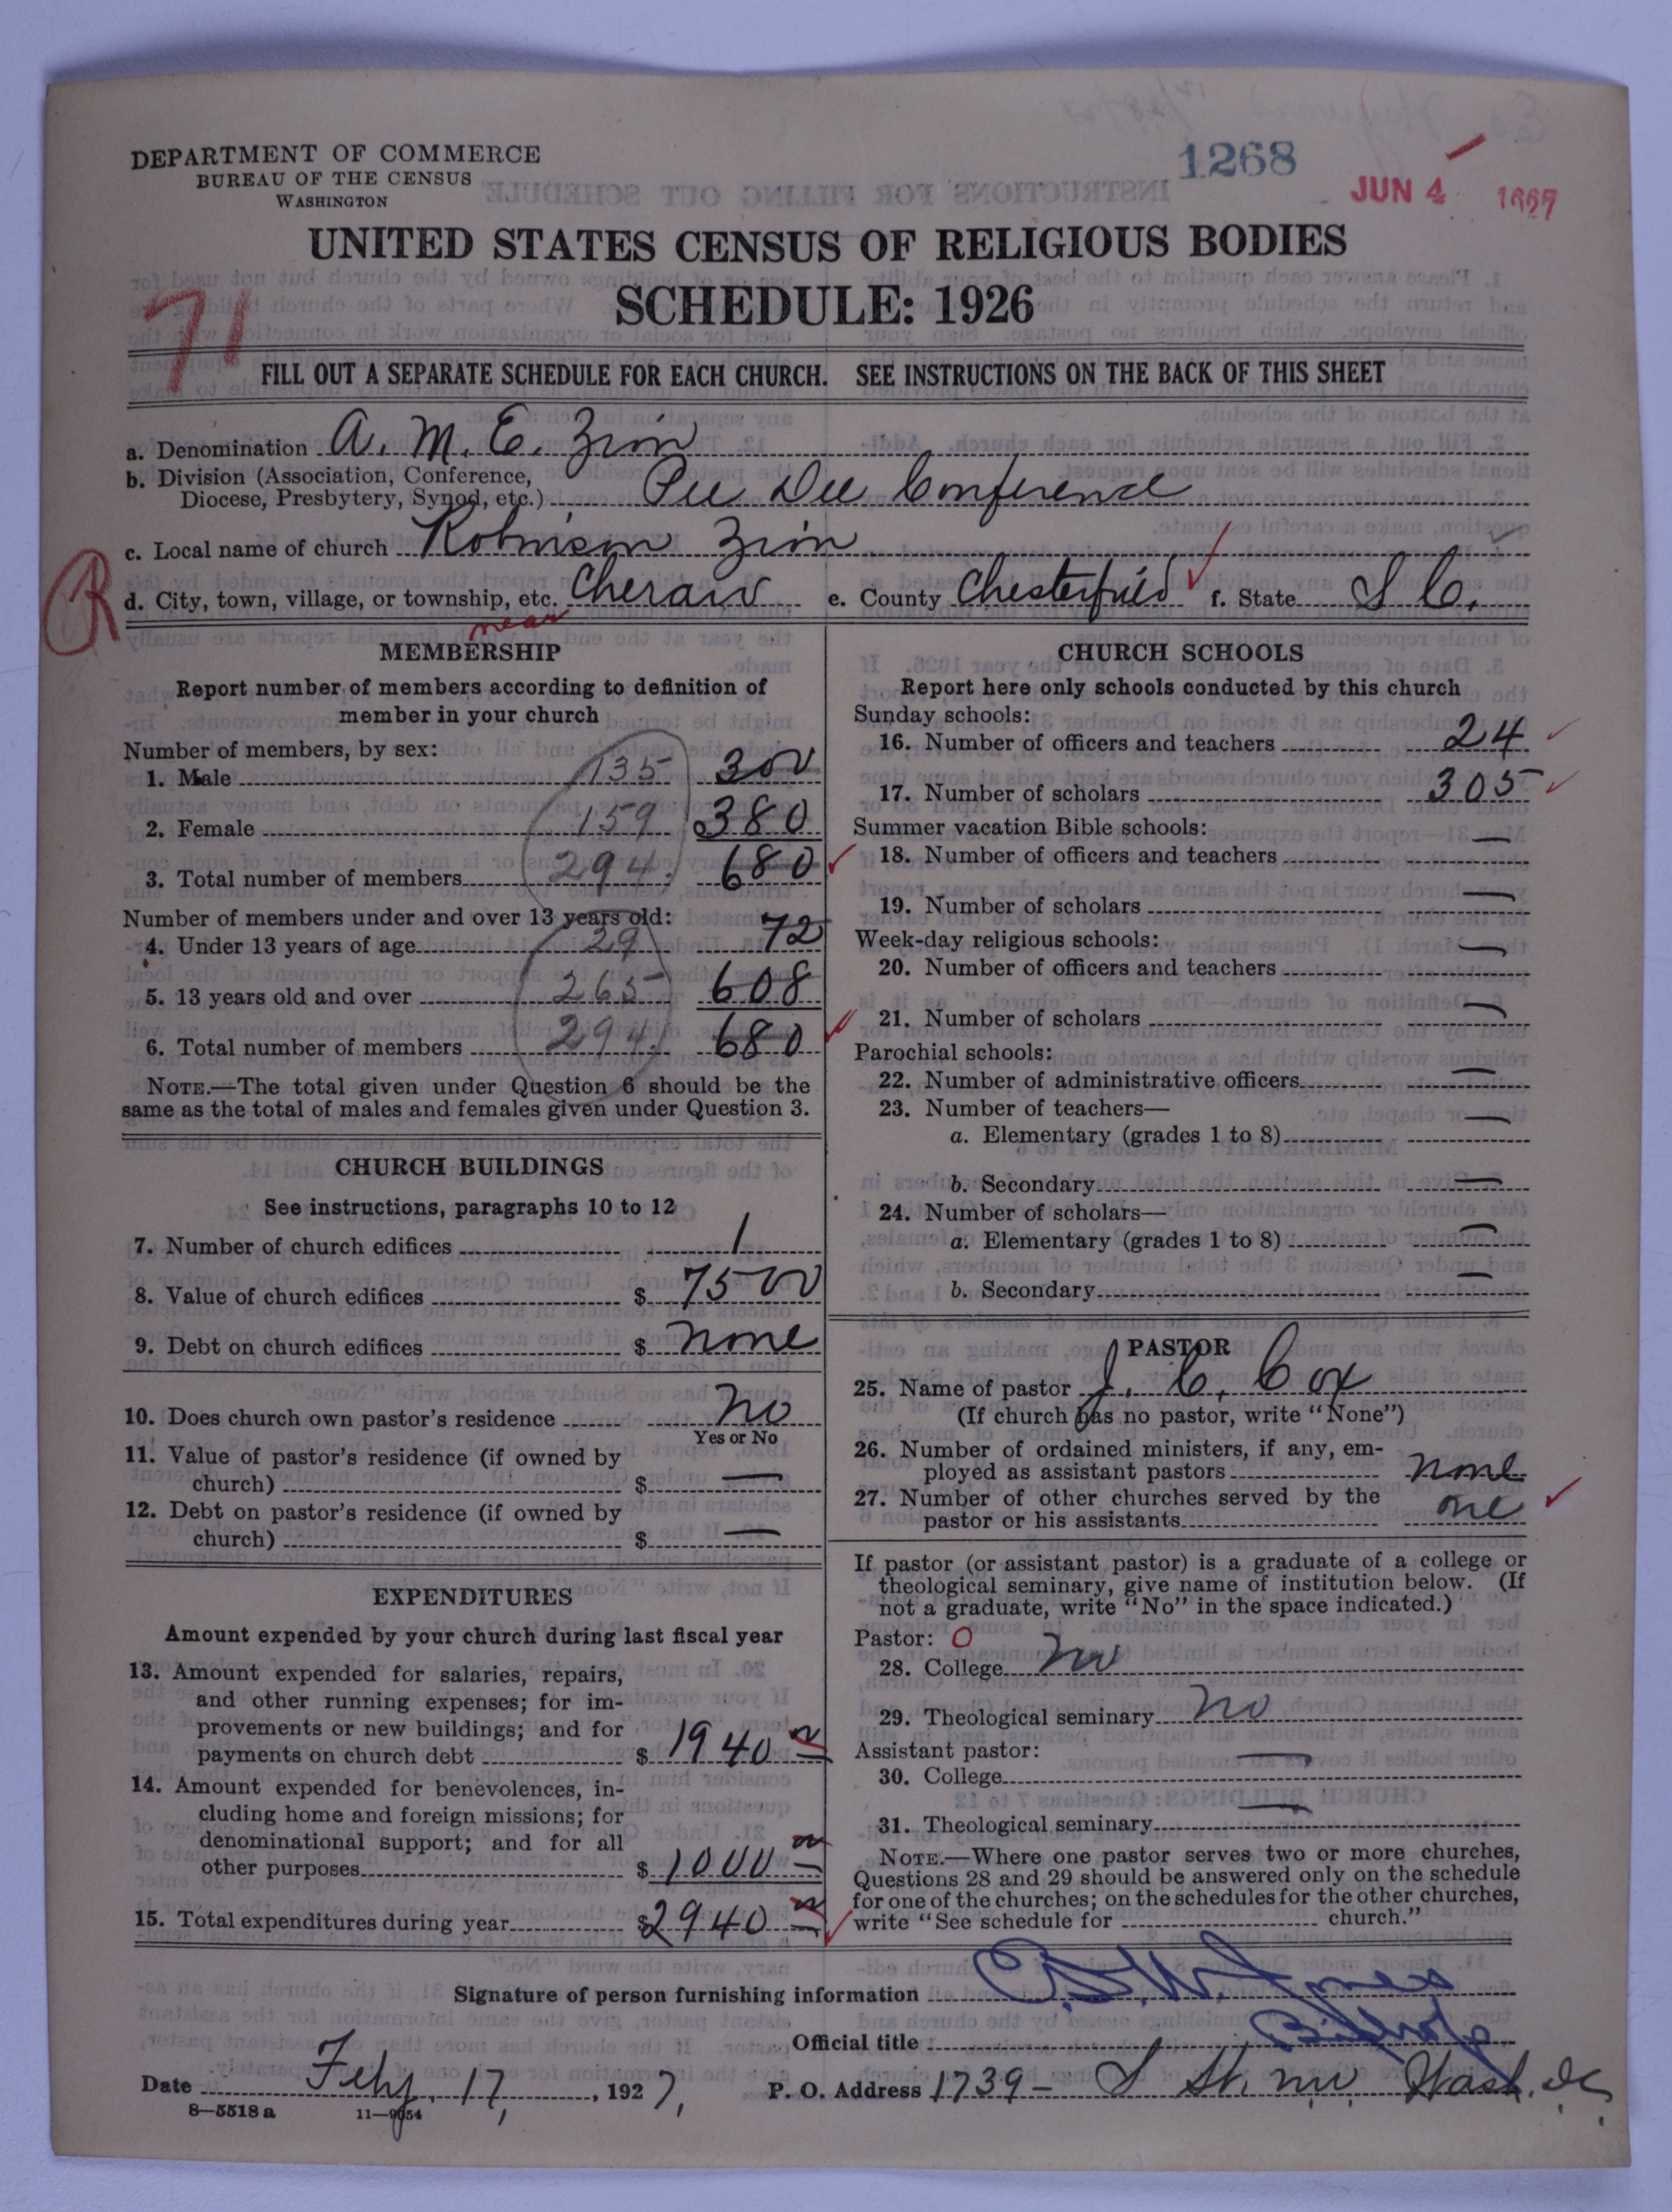 1268
JUN 4
DEPARTMENT OF COMMERCE
BUREAU OF THE CENSUS
WASHINGTON
UNITED STATES CENSUS OF RELIGIOUS BODIES
SCHEDULE: 1926
71
FILL OUT A SEPARATE SCHEDULE FOR EACH CHURCH. SEE INSTRUCTIONS ON THE BACK OF THIS SHEET
a. Denomination A. M. E. Zion
b. Division (Association, Conference,
Diocese, Presbytery, Synod, etc.) Pee Dee Conference
c. Local name of church Robinson Zion
R
d. City, town, village, or township, etc. Cheraw e. County Chesterfield f. State S C.
near
MEMBERSHIP
Report number of members according to definition of
member in your church
Number of members, by sex:
1. Male 135 300
2. Female 159 380
3. Total number of members 294 680
Number of members under and over 13 years old:
4. Under 13 years of age 29 72
5. 13 years old and over 265 608
6. Total number of members 294 680
NOTE.—The total given under Question 6 should be the
same as the total of males and females given under Question 3.
CHURCH BUILDINGS
See instructions, paragraphs 10 to 12
7. Number of church edifices 1
8. Value of church edifices $ 7500
9. Debt on church edifices $ none
10. Does church own pastor's residence No
Yes or No
11. Value of pastor's residence (if owned by
church) $ —
12. Debt on pastor's residence (if owned by
church) $ —
EXPENDITURES
Amount expended by your church during last fiscal year
13. Amount expended for salaries, repairs,
and other running expenses; for im-
provements or new buildings; and for
payments on church debt $ 1940 00
14. Amount expended for benevolences, in-
cluding home and foreign missions; for
denominational support; and for all
other purposes $ 1000 00
15. Total expenditures during year $2940 00
CHURCH SCHOOLS
Report here only schools conducted by this church
Sunday schools:
16. Number of officers and teachers 24
17. Number of scholars 305
Summer vacation Bible schools:
18. Number of officers and teachers —
19. Number of scholars —
Week-day religious schools:
20. Number of officers and teachers —
21. Number of scholars —
Parochial schools:
22. Number of administrative officers —
23. Number of teachers—
a. Elementary (grades 1 to 8) —
b. Secondary —
24. Number of scholars—
a. Elementary (grades 1 to 8) —
b. Secondary —
PASTOR
25. Name of pastor J. C. Cox
(If church has no pastor, write "None")
26. Number of ordained ministers, if any, em-
ployed as assistant pastors none
27. Number of other churches served by the
pastor or his assistants one
If pastor (or assistant pastor) is a graduate of a college or
theological seminary, give name of institution below. (If
not a graduate, write "No" in the space indicated.)
Pastor: O
28. College No
29. Theological seminary No
Assistant pastor:
30. College —
31. Theological seminary —
NOTE.—Where one pastor serves two or more churches,
Questions 28 and 29 should be answered only on the schedule
for one of the churches; on the schedules for the other churches,
write "See schedule for church."
Signature of person furnishing information Jones
Official title Bishop
Date Feby. 17, 1927, P. O. Address 1739 - S St. nw Wash. D.C.
8—5518 a 11—9054